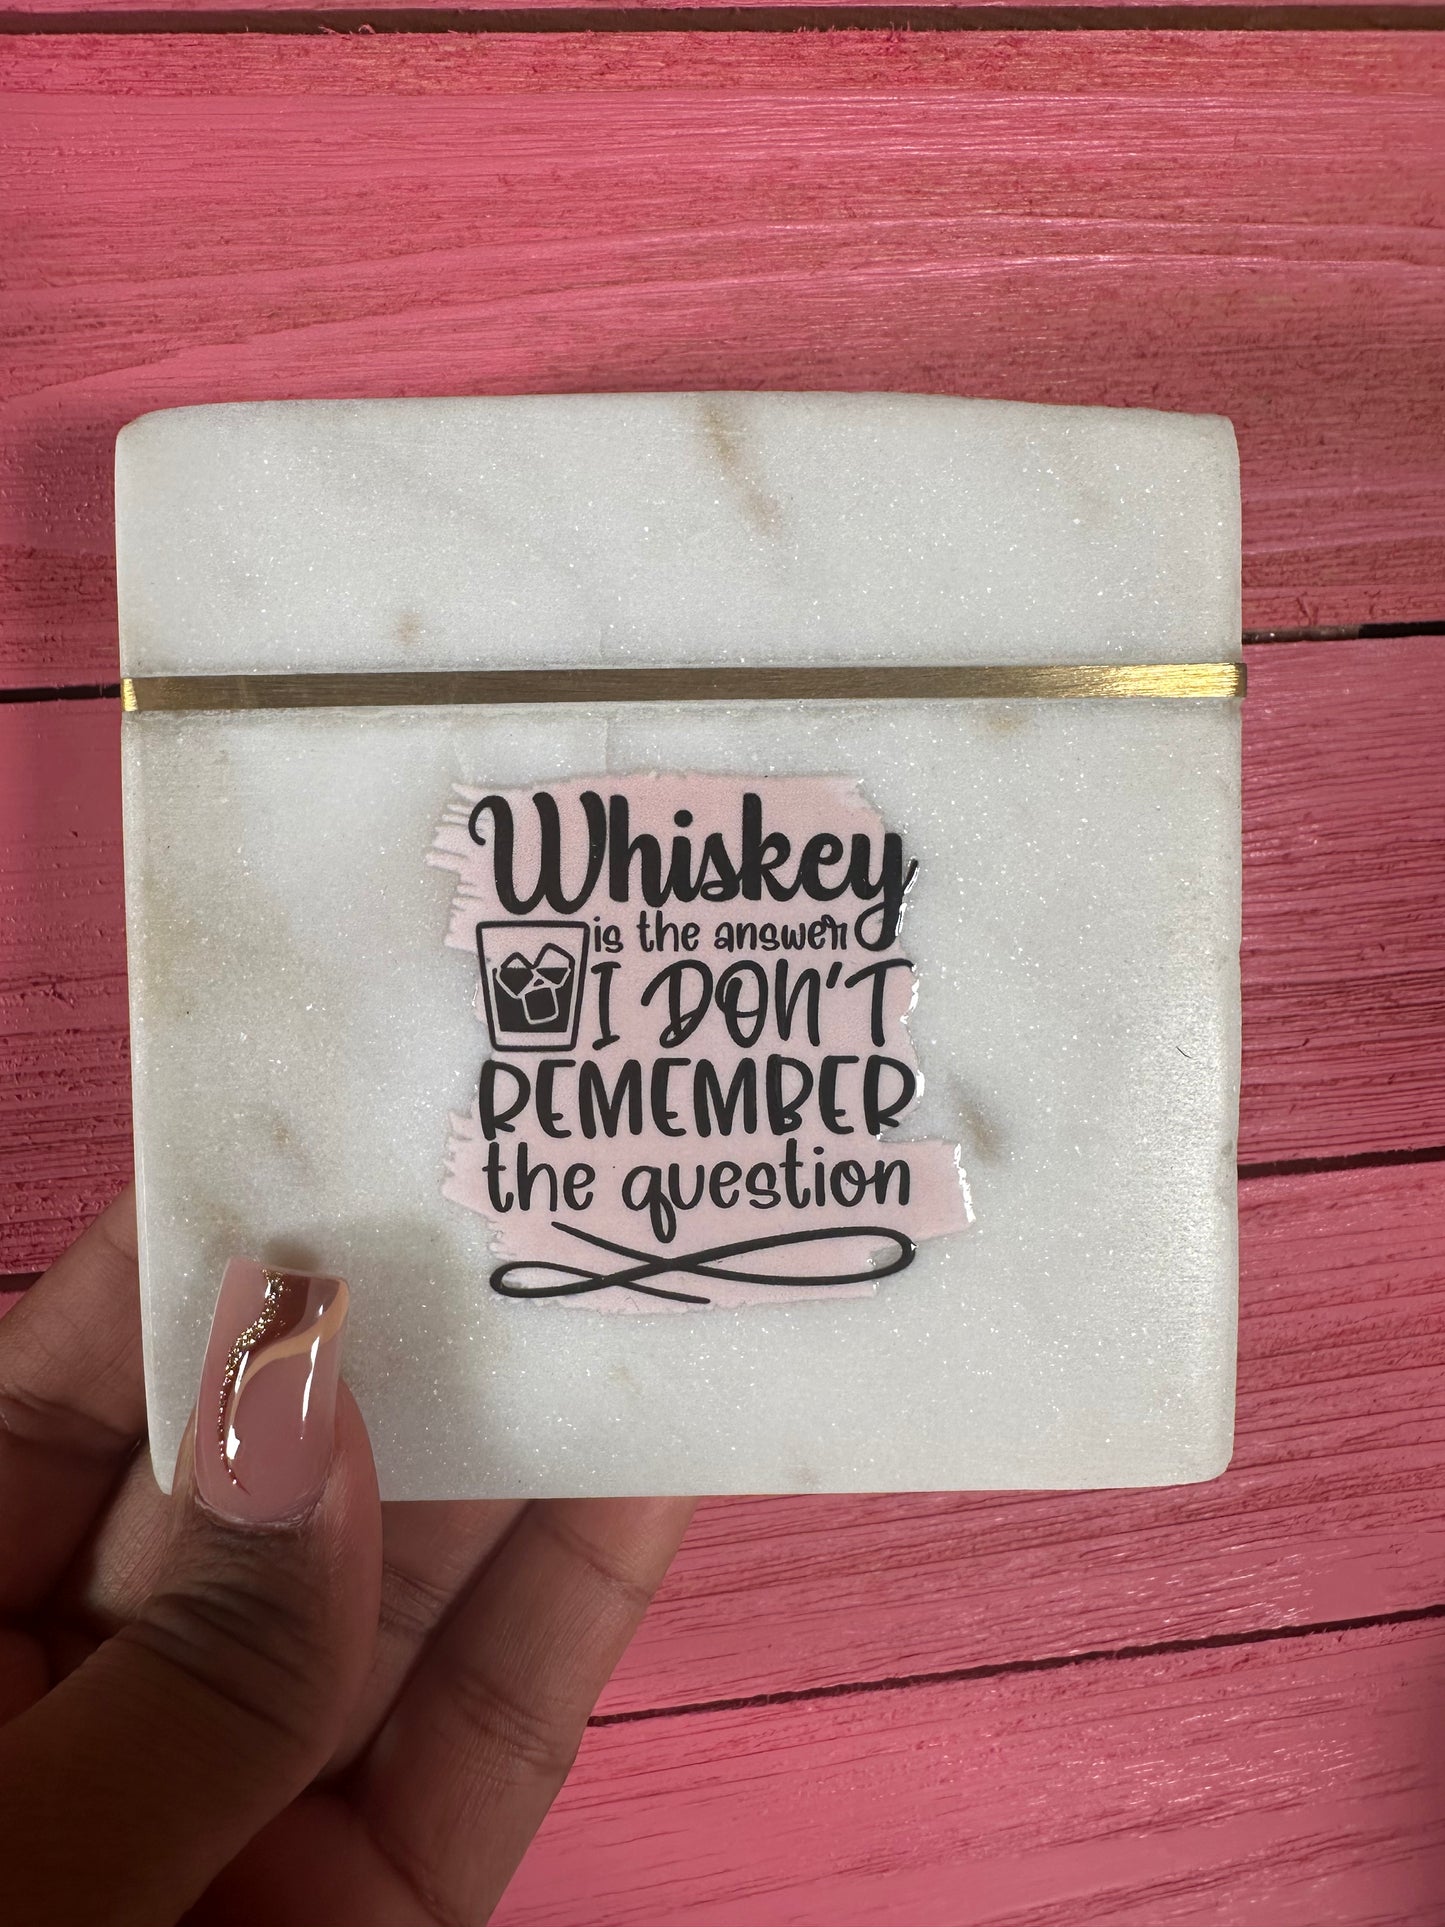 Whiskey
is the answer
I DON'T
REMEMBER
the question